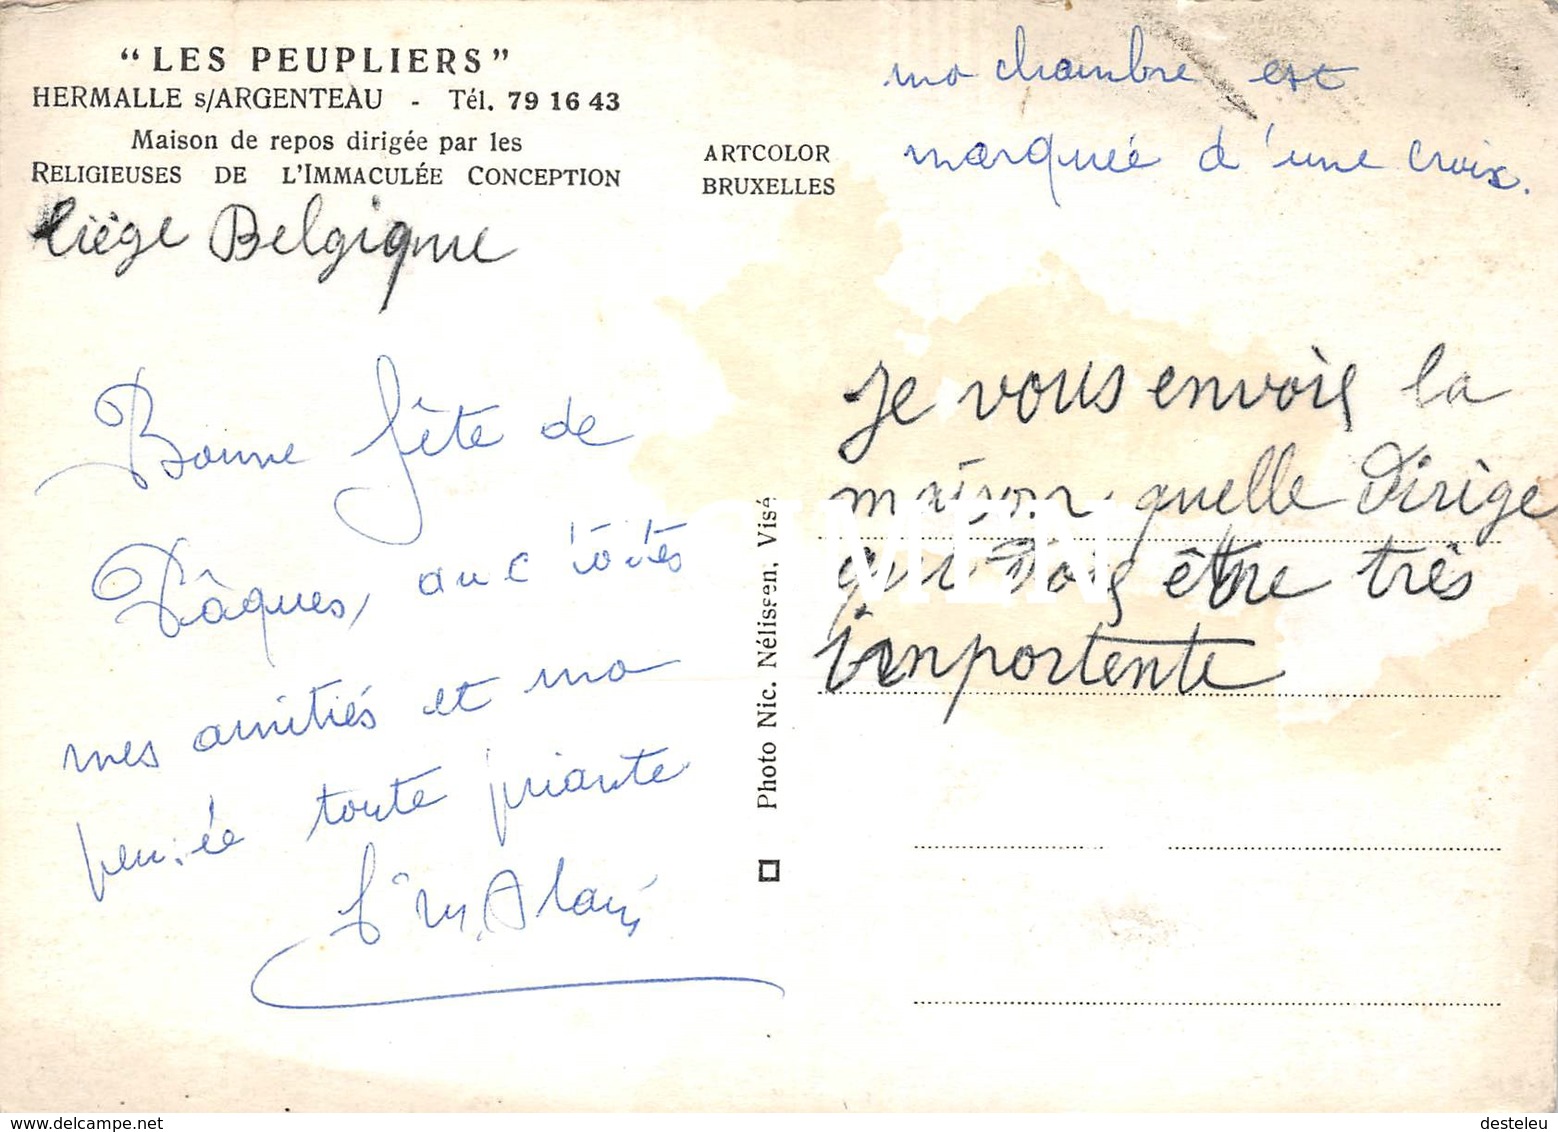 “LES PEUPLIERS”
HERMALLE s/ARGENTEAU - Tél. 79 16 43
Maison de repos dirigée par les
RELIGIEUSES DE L'IMMACULÉE CONCEPTION
Liège Belgique
Bonne fête de
Pâques, avec toutes
mes amitiés et ma
pensée toute priante
Sr M. Alain
ARTCOLOR
BRUXELLES
Photo Nic. Nélissen, Visé
ma chambre est
marquée d'une croix.
je vous envois la
maison quelle dirige
qui dois être très
importente
desteleu